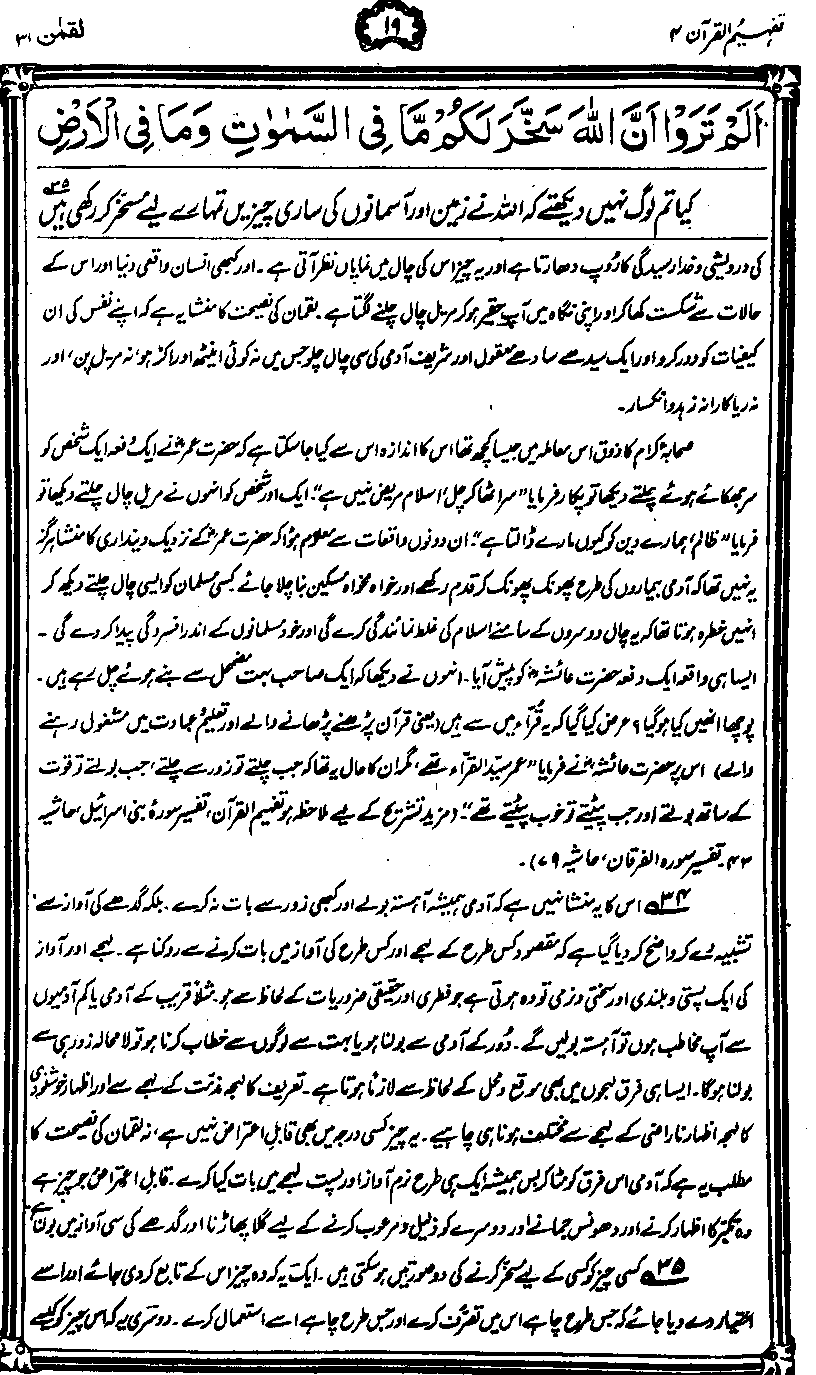 تفہیم القرآن ۴
۱۹
لقمٰن ۳۱
اَلَمْ تَرَوْا اَنَّ اللهَ سَخَّرَ لَكُمْ مَّا فِى السَّمٰوٰتِ وَمَا فِى الْاَرْضِ
کیا تم لوگ نہیں دیکھتے کہ اللہ نے زمین اور آسمانوں کی ساری چیزیں تمہارے لیے مسخّر کر رکھی ہیں ۳۵
کی درویشی و خدا رسیدگی کا رُوپ دھارتا ہے اور یہ چیز اس کی چال میں نمایاں نظر آتی ہے۔ اور کبھی انسان واقعی دنیا اور اس کے
حالات سے شکست کھا کر اور اپنی نگاہ میں آپ حقیر ہو کر مریل چال چلنے لگتا ہے۔ لقمان کی نصیحت کا منشا یہ ہے کہ اپنے نفس کی ان
کیفیات کو دور کرو اور ایک سیدھے سادھے معقول اور شریف آدمی کی سی چال چلو جس میں نہ کوئی اینٹھ اور اکڑ ہو، نہ مریل پن، اور
نہ ریا کارانہ زہد و انکسار۔
صحابۂ کرام کا ذوق اس معاملہ میں جیسا کچھ تھا اس کا اندازہ اس سے کیا جا سکتا ہے کہ حضرت عمرؓ نے ایک دفعہ ایک شخص کو
سر جھکائے ہوئے چلتے دیکھا تو پکار فرمایا "سر اٹھا کر چل، اسلام مریض نہیں ہے"۔ ایک اور شخص کو انہوں نے مریل چال چلتے دیکھا تو
فرمایا "ظالم، ہمارے دین کو کیوں مارے ڈالتا ہے"۔ ان دونوں واقعات سے معلوم ہوا کہ حضرت عمرؓ کے نزدیک دینداری کا منشا ہرگز
یہ نہیں تھا کہ آدمی بیماروں کی طرح پھونک پھونک کر قدم رکھے اور خواہ مخواہ مسکین بنا چلا جائے۔ کسی مسلمان کو ایسی چال چلتے دیکھ کر
انہیں خطرہ ہوتا تھا کہ یہ چال دوسروں کے سامنے اسلام کی غلط نمائندگی کرے گی اور خود مسلمانوں کے اندر افسردگی پیدا کر دے گی۔
ایسا ہی واقعہ ایک دفعہ حضرت عائشہؓ کو پیش آیا۔ انہوں نے دیکھا کہ ایک صاحب بہت مضمحل سے بنے ہوئے چل رہے ہیں۔
پوچھا انہیں کیا ہو گیا؟ عرض کیا گیا کہ یہ قُرّاء میں سے ہیں (یعنی قرآن پڑھنے پڑھانے والے اور تعلیم و عبادت میں مشغول رہنے
والے) اس پر حضرت عائشہؓ نے فرمایا "عمر سیّد القرّاء تھے، مگر ان کا حال یہ تھا کہ جب چلتے تو زور سے چلتے، جب بولتے تو قوت
کے ساتھ بولتے اور جب پیٹتے تو خوب پیٹتے تھے"۔ (مزید تشریح کے لیے ملاحظہ ہو تفہیم القرآن، تفسیر سورۂ بنی اسرائیل، حاشیہ
۴۳۔ تفسیر سورہ الفرقان، حاشیہ ۷۹)۔
۳۴ اس کا یہ منشا نہیں ہے کہ آدمی ہمیشہ آہستہ بولے اور کبھی زور سے بات نہ کرے۔ بلکہ گدھے کی آواز سے
تشبیہ دے کر واضح کر دیا گیا ہے کہ مقصود کس طرح کے لہجے اور کس طرح کی آواز میں بات کرنے سے روکنا ہے۔ لہجے اور آواز
کی ایک پستی و بلندی اور سختی و نرمی تو وہ ہوتی ہے جو فطری اور حقیقی ضروریات کے لحاظ سے ہو۔ مثلاً قریب کے آدمی یا کم آدمیوں
سے آپ مخاطب ہوں تو آہستہ بولیں گے۔ دُور کے آدمی سے بولنا ہو یا بہت سے لوگوں سے خطاب کرنا ہو تو لا محالہ زور ہی سے
بولنا ہوگا۔ ایسا ہی فرق لہجوں میں بھی موقع و محل کے لحاظ سے لازماً ہوتا ہے۔ تعریف کا لہجہ مذمت کے لہجے سے اور اظہار خوشنودی
کا لہجہ اظہار ناراضی کے لہجے سے مختلف ہونا ہی چاہیے۔ یہ چیز کسی درجہ میں بھی قابلِ اعتراض نہیں ہے، نہ لقمان کی نصیحت کا
مطلب یہ ہے کہ آدمی اس فرق کو مٹا کر بس ہمیشہ ایک ہی طرح نرم آواز اور پست لہجے میں بات کیا کرے۔ قابلِ اعتراض جو چیز ہے
وہ تکبّر کا اظہار کرنے اور دھونس جمانے اور دوسرے کو ذلیل و مرعوب کرنے کے لیے گلا پھاڑنا اور گدھے کی سی آواز میں بولنا ہے۔
۳۵ کسی چیز کو کسی کے لیے مسخّر کرنے کی دو صورتیں ہو سکتی ہیں۔ ایک یہ کہ وہ چیز اس کے تابع کر دی جائے اور اسے
اختیار دے دیا جائے کہ جس طرح چاہے اس میں تصرّف کرے اور جس طرح چاہے اسے استعمال کرے۔ دوسری یہ کہ اس چیز کو ایسے